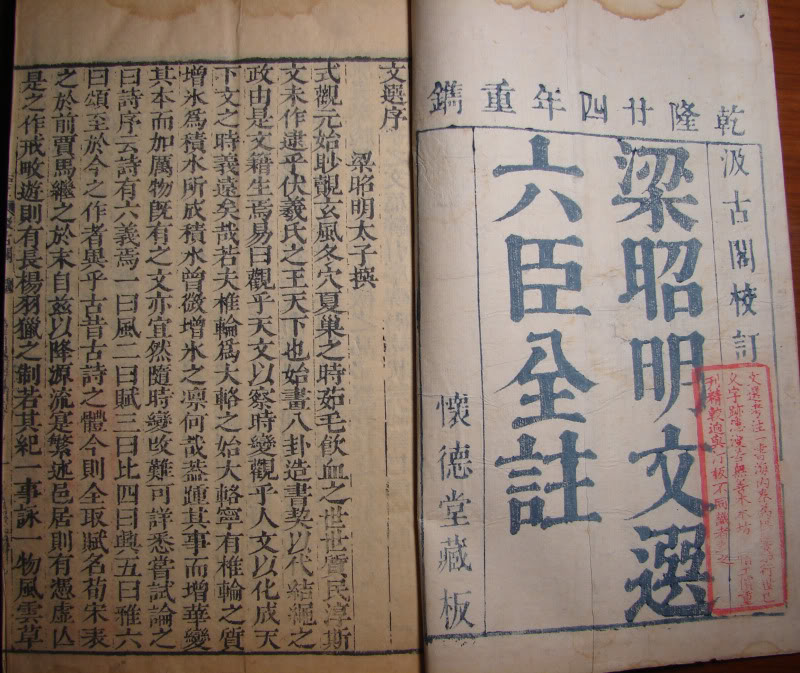 乾隆廿四年重鐫
汲古閣校訂
梁昭明文選
六臣全註
懷德堂藏板
文選考注一書海內奉為
文字跡
刊精較迥與
文選序
梁昭明太子撰
式觀元始眇覿玄風冬穴夏巢之時茹毛飲血之世世質民淳斯
文未作逮乎伏羲氏之王天下也始畫八卦造書契以代結繩之
政由是文籍生焉易曰觀乎天文以察時變觀乎人文以化成天
下文之時義遠矣哉若夫椎輪爲大輅之始大輅寧有椎輪之質
增氷爲積水所成積水曾微增氷之凛何哉葢踵其事而增華變
其本而加厲物旣有之文亦宜然隨時變改難可詳悉嘗試論之
曰詩序云詩有六義焉一曰風二曰賦三曰比四曰興五曰雅六
曰頌至於今之作者異乎古昔古詩之體今則全取賦名荀宋表
之於前賈馬繼之於末自兹以降源流寔繁述邑居則有憑虛亾
是之作戒畋遊則有長楊羽獵之制若其紀一事詠一物風雲草